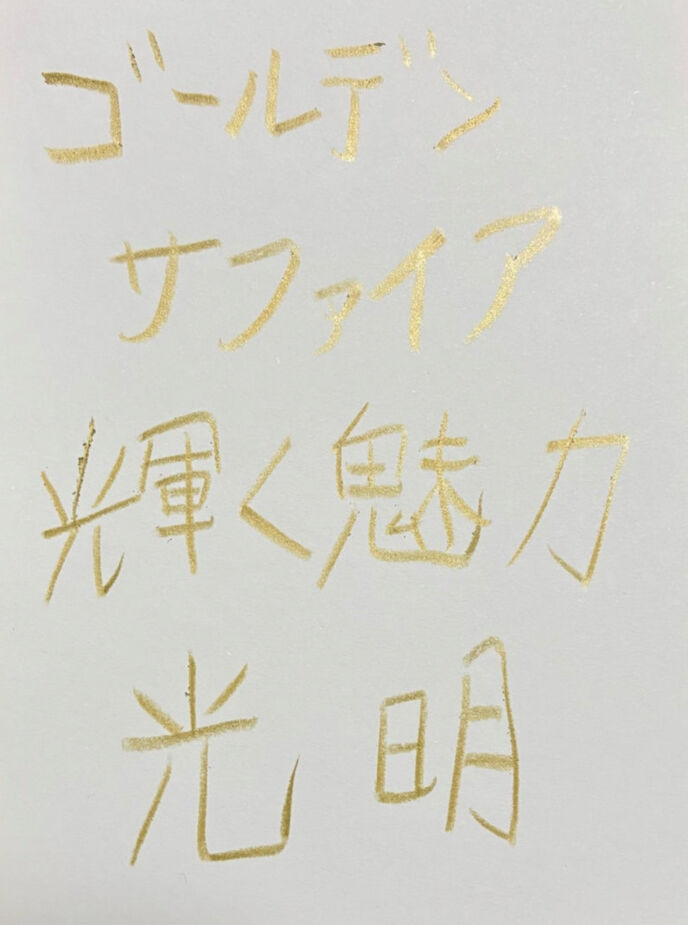 ゴールデン
サファイア
輝く魅力
光明